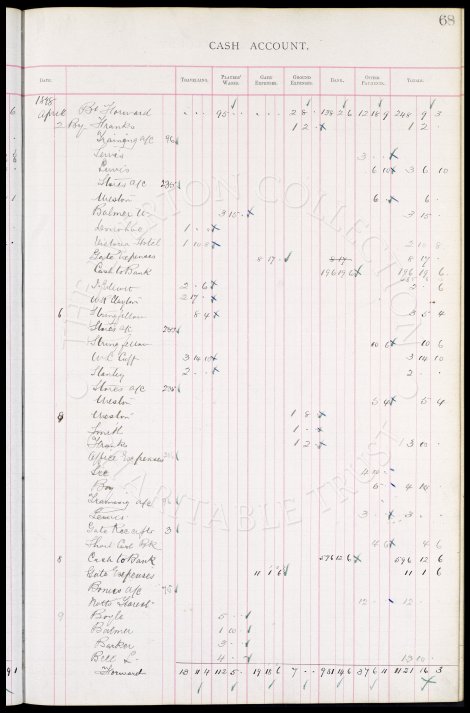 68
CASH ACCOUNT.
DATE. TRAVELLING. PLAYERS' WAGES. GATE EXPENSES. GROUND EXPENSES. BANK. OTHER PAYMENTS. TOTALS.
1898
April Bt Forward 95 - - 2 8 - 138 2 6 12 18 9 248 9 3
2 By Franks 1 2 1 2 -
Training a/c 96
Lewis 3 - -
Lewis 6 10 3 6 10
Stores a/c 235
Weston 6 - 6 -
Balmer W 3 15 - 3 15 -
1 - -
Victoria Hotel 1 10 8 2 10 8
Gate Expenses 8 17 - 8 17 8 17 -
Cash to Bank 196 19 6 196 19 6
J Elliott 2 - 6 2 - 6
Wm Clayton 2 17 -
6 Stringfellow 8 4 3 5 4
Stores a/c 235
Stringfellow 10 6 10 6
W. C. Cuff 3 14 10 3 14 10
Stanley 2 - - 2 - -
Stores a/c 235
Weston 5 4 5 4
8 Weston 1 8 -
Smith 1 - -
Franks 1 2 3 10 -
Office Expenses
Lee 4 4 -
Boy 6 - 4 14 -
Training a/c 96
Lewis 3 - - 3 - -
Gate Receipts 3
4 6 4 6
8 Cash to Bank 596 12 6 596 12 6
Gate Expenses 11 1 6 11 1 6
Bonus a/c 75
Notts Forest 12 - - 12 - -
9 Boyle 5 - -
Balmer 1 10 -
Barker 3 - -
Bell L. 4 - - 13 10 -
Forward 13 11 4 112 5 - 19 18 6 7 - - 931 14 6 37 6 11 1121 16 3
THE EVERTON COLLECTION CHARITABLE TRUST